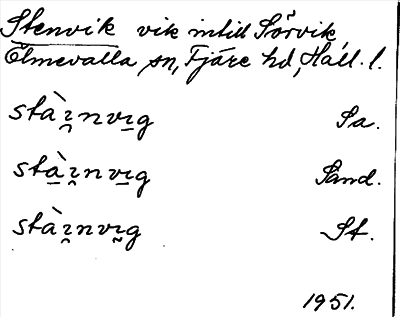 Stenvik vik intill Sörvik
Ölmevalla sn, Fjäre hd, Hall. l.
stàɪ̯nvɪg Sa.
stàɪ̯nvɪg Sand.
stàɪ̯nvɪg St.
1951.